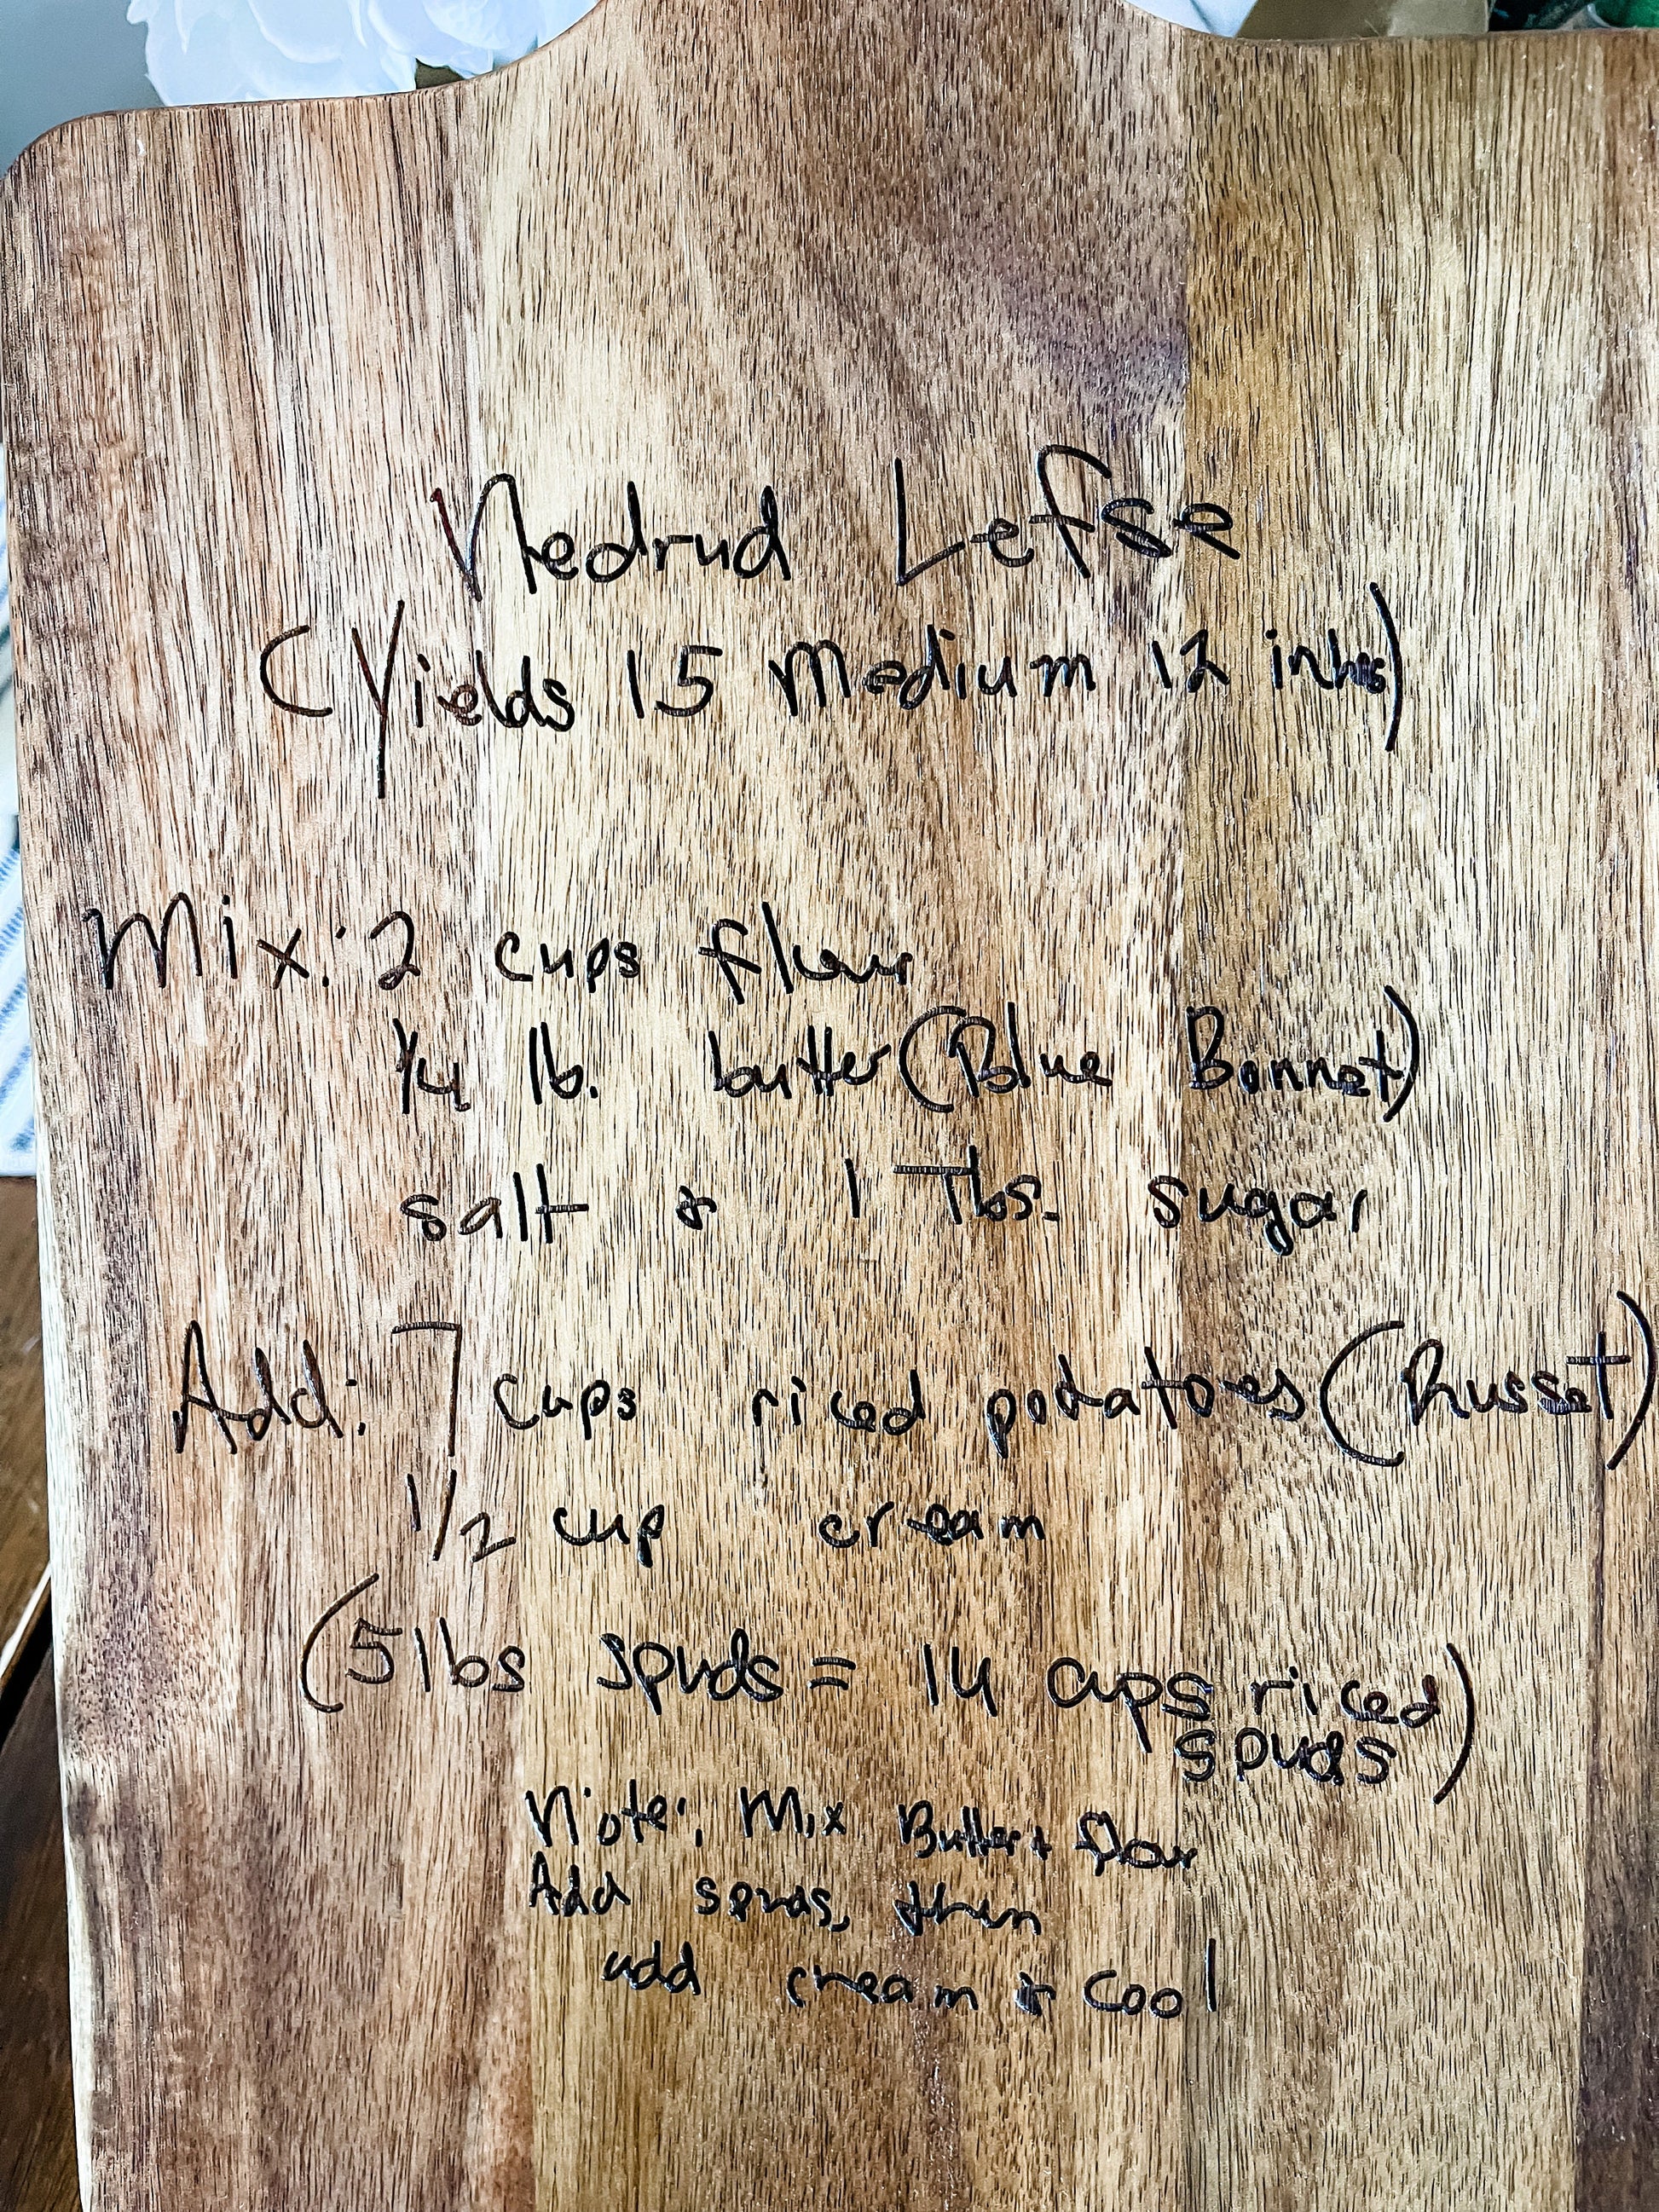 Nedrud Lefse
(Yields 15 Medium 12 inhes)
Mix: 2 cups flour
1/4 lb. butter (Blue Bonnet)
salt & 1 Tbs. sugar
Add: 7 cups riced potatoes (Russet)
1/2 cup cream
(5 lbs spuds = 14 cups riced
spuds)
Note: Mix Butter + flour
Add spuds, then
add cream & cool